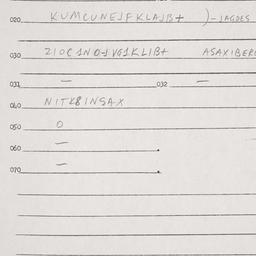 020 KUMCUNEJFKLAJB+ )-JAGDES
030 ASAXIBER
031 — 032 —
040 NITKBINSAX
050 O
060 —
070 —